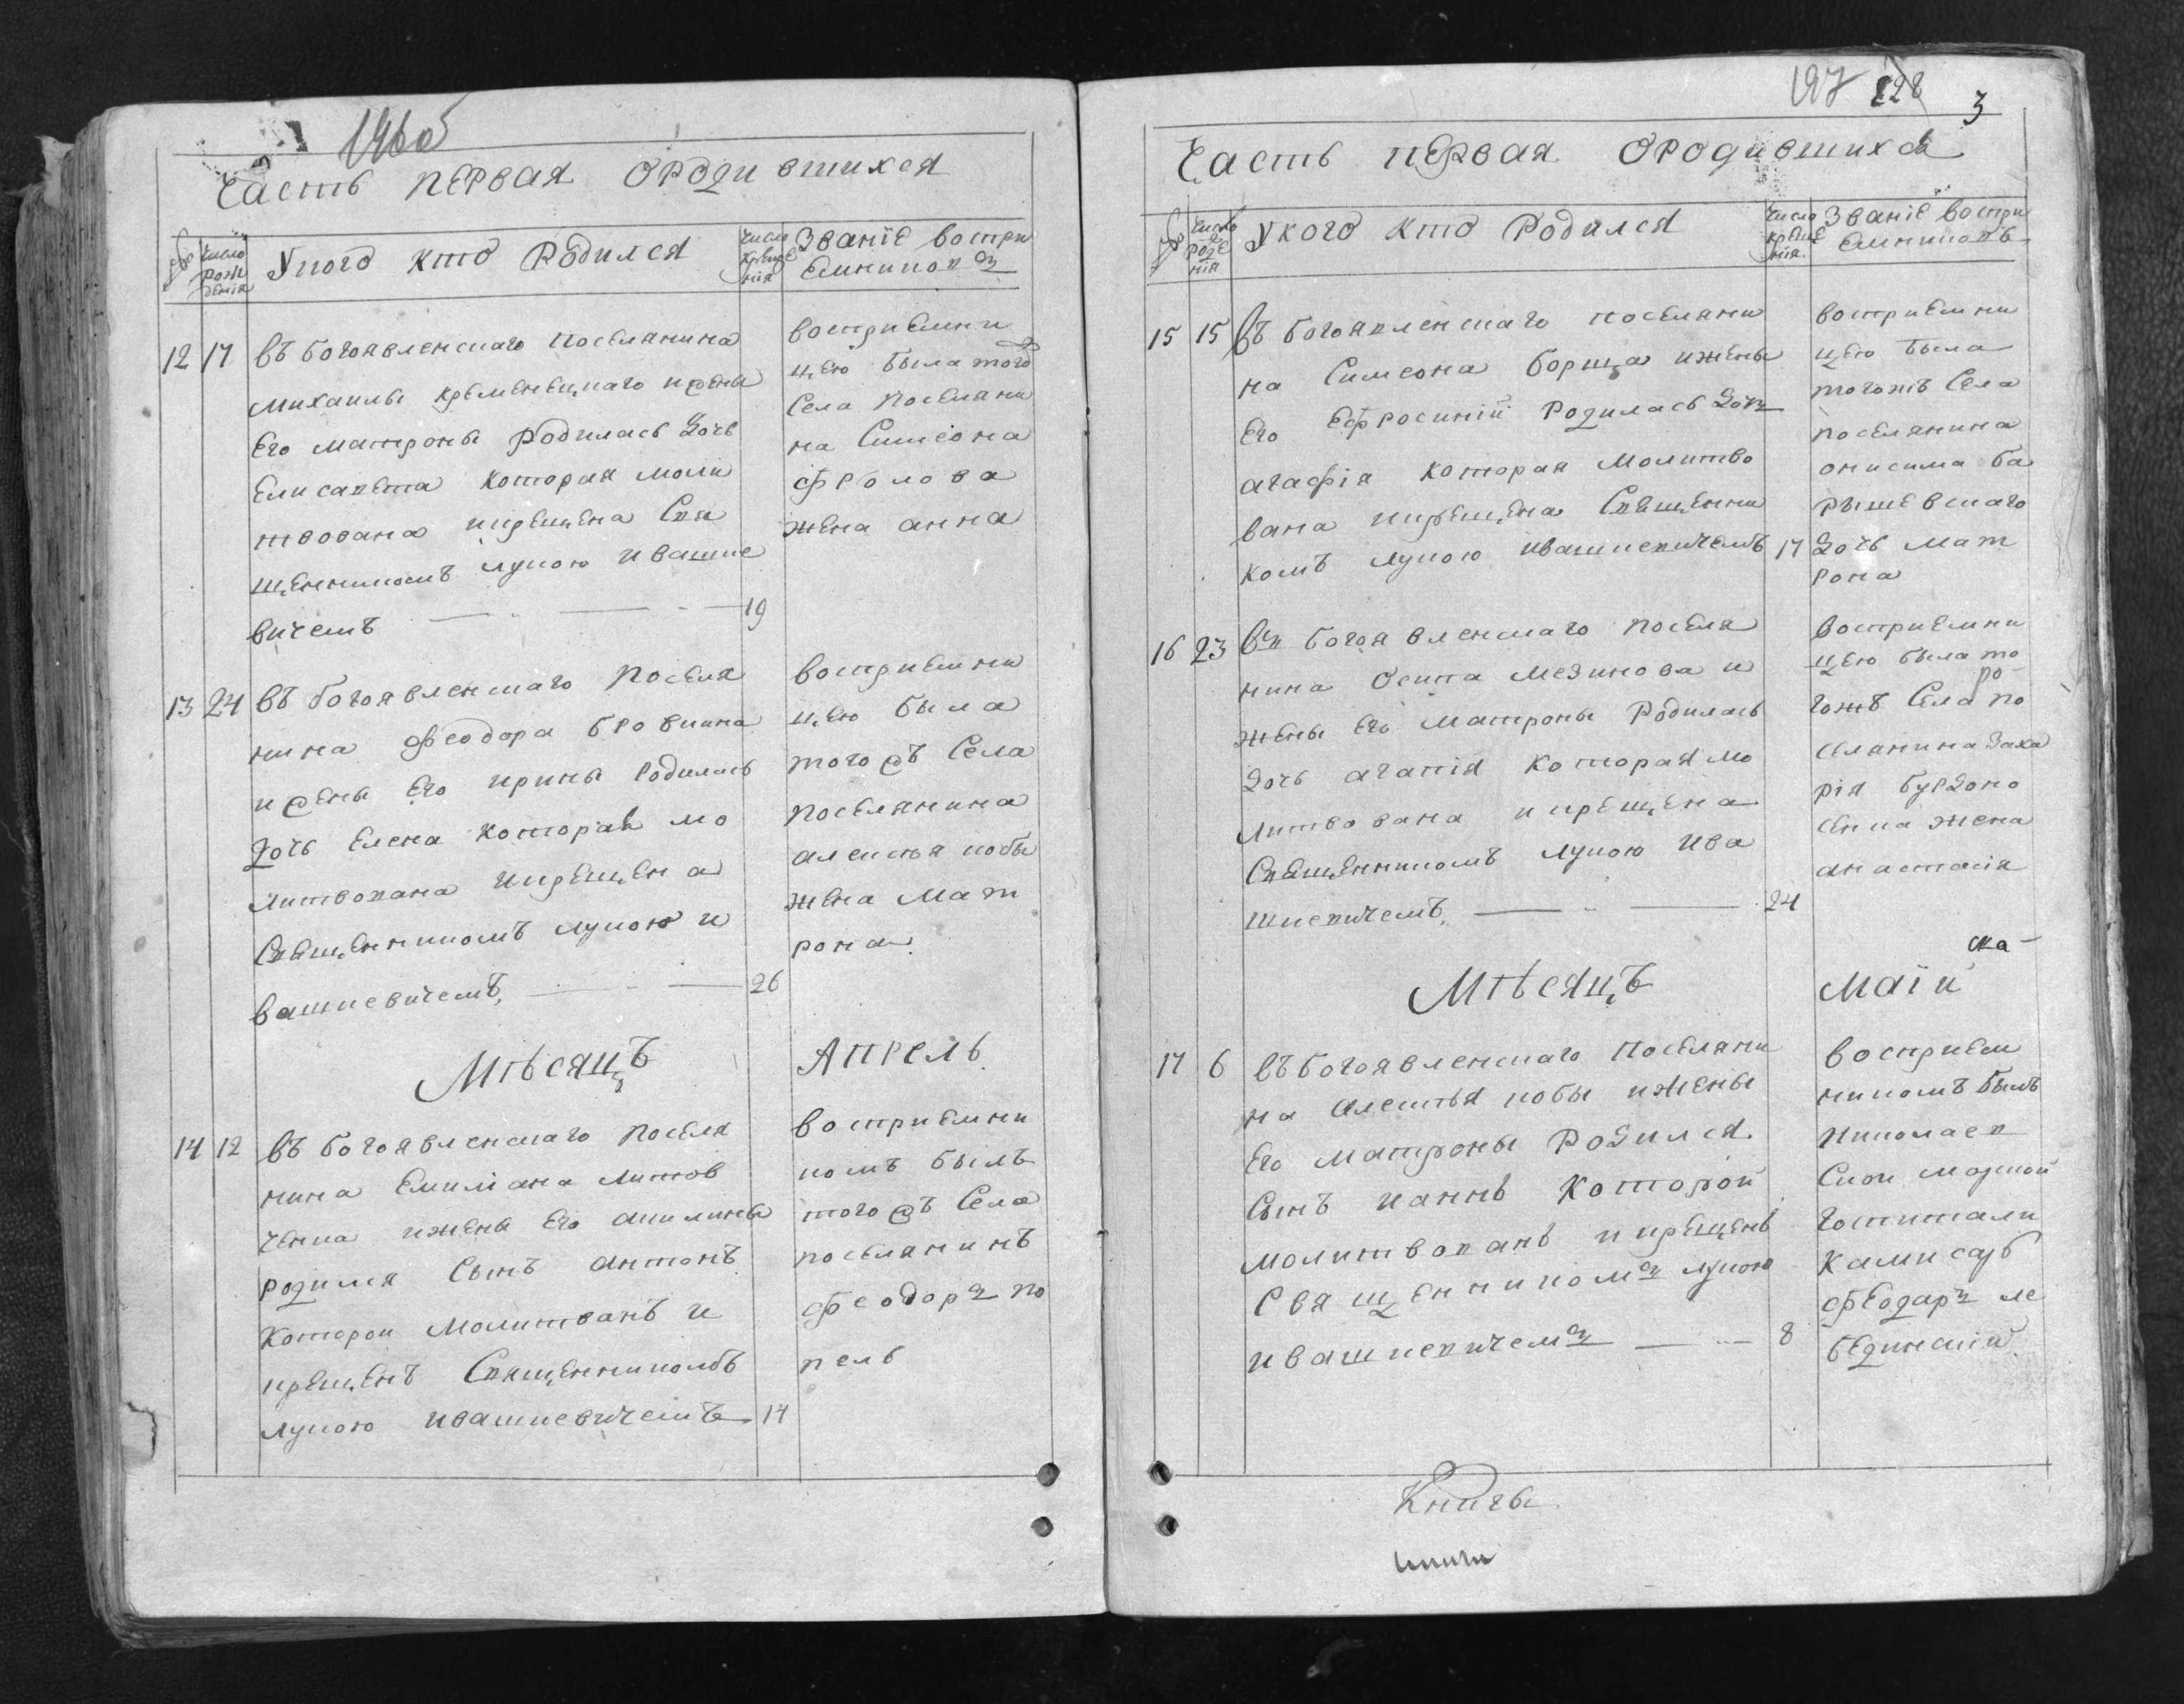 196об
Часть первая о родившихся
№
Число рождения
У кого кто Родился
Число крещения
Званіе восприемниковъ
12 17
въ богоявленскаго поселянина
михаилы кременецкаго и жены
Его матроны родилась дочь
Елисавета которая моли
твована и крещена Свя
щенникомъ лукою ивашке
вичемъ 19
восприемни
цею была тогожъ
Села поселяни
на Симеона
фролова
жена анна
13 24
въ богоявленскаго поселя
нина феодора бровкина
и жены Его ирины родилась
дочь Елена которая мо
литвована и крещена
Священникомъ лукою и
вашкевичемъ 26
восприемни
цею была
того жъ Села
поселянина
алексея кобы
жена мат
рона
Мѣсяцъ Апрель
14 12
въ богоявленскаго поселя
нина Емилiана литов
ченка и жены Его акилины
родился Сынъ антонъ
которои молитванъ и
крещенъ Священникомъ
лукою ивашкевичемъ 14
восприемни
комъ былъ
того жъ Села
поселянинъ
феодоръ ко
пель
197 228 3
Часть первая о родившихся
№
Число рождения
У кого кто Родился
Число крещения
Званіе восприемниковъ
15 15
въ богоявленскаго поселяни
на Симеона борща и жены
Его Ефросинiи родилась дочь
агафiя которая молитво
вана и крещена Священни
комъ лукою ивашкевичемъ 17
восприемни
цею была
тогожъ Села
поселянина
онисима ба
рышевскаго
дочь мат
рона
16 23
въ богоявленскаго поселя
нина Осипа мезинова и
жены Его матроны родилась
дочь агапiя которая мо
литвована и крещена
Священникомъ лукою ива
шкевичемъ 24
восприемни
цею была то
гожъ Села по
селянина заха
рiя бурдоно
сенка жена
анастасiя
Мѣсяцъ маiи
17 6
въ богоявленскаго поселяни
на алексея кобы и жены
Его матроны родился
Сынъ ианнъ которои
молитвованъ и крещенъ
Священникомъ лукою
ивашкевичемъ 8
восприем
никомъ былъ
николаев
Скои морской
госпитали
камисаръ
феодаръ ле
бединскiи
Книги